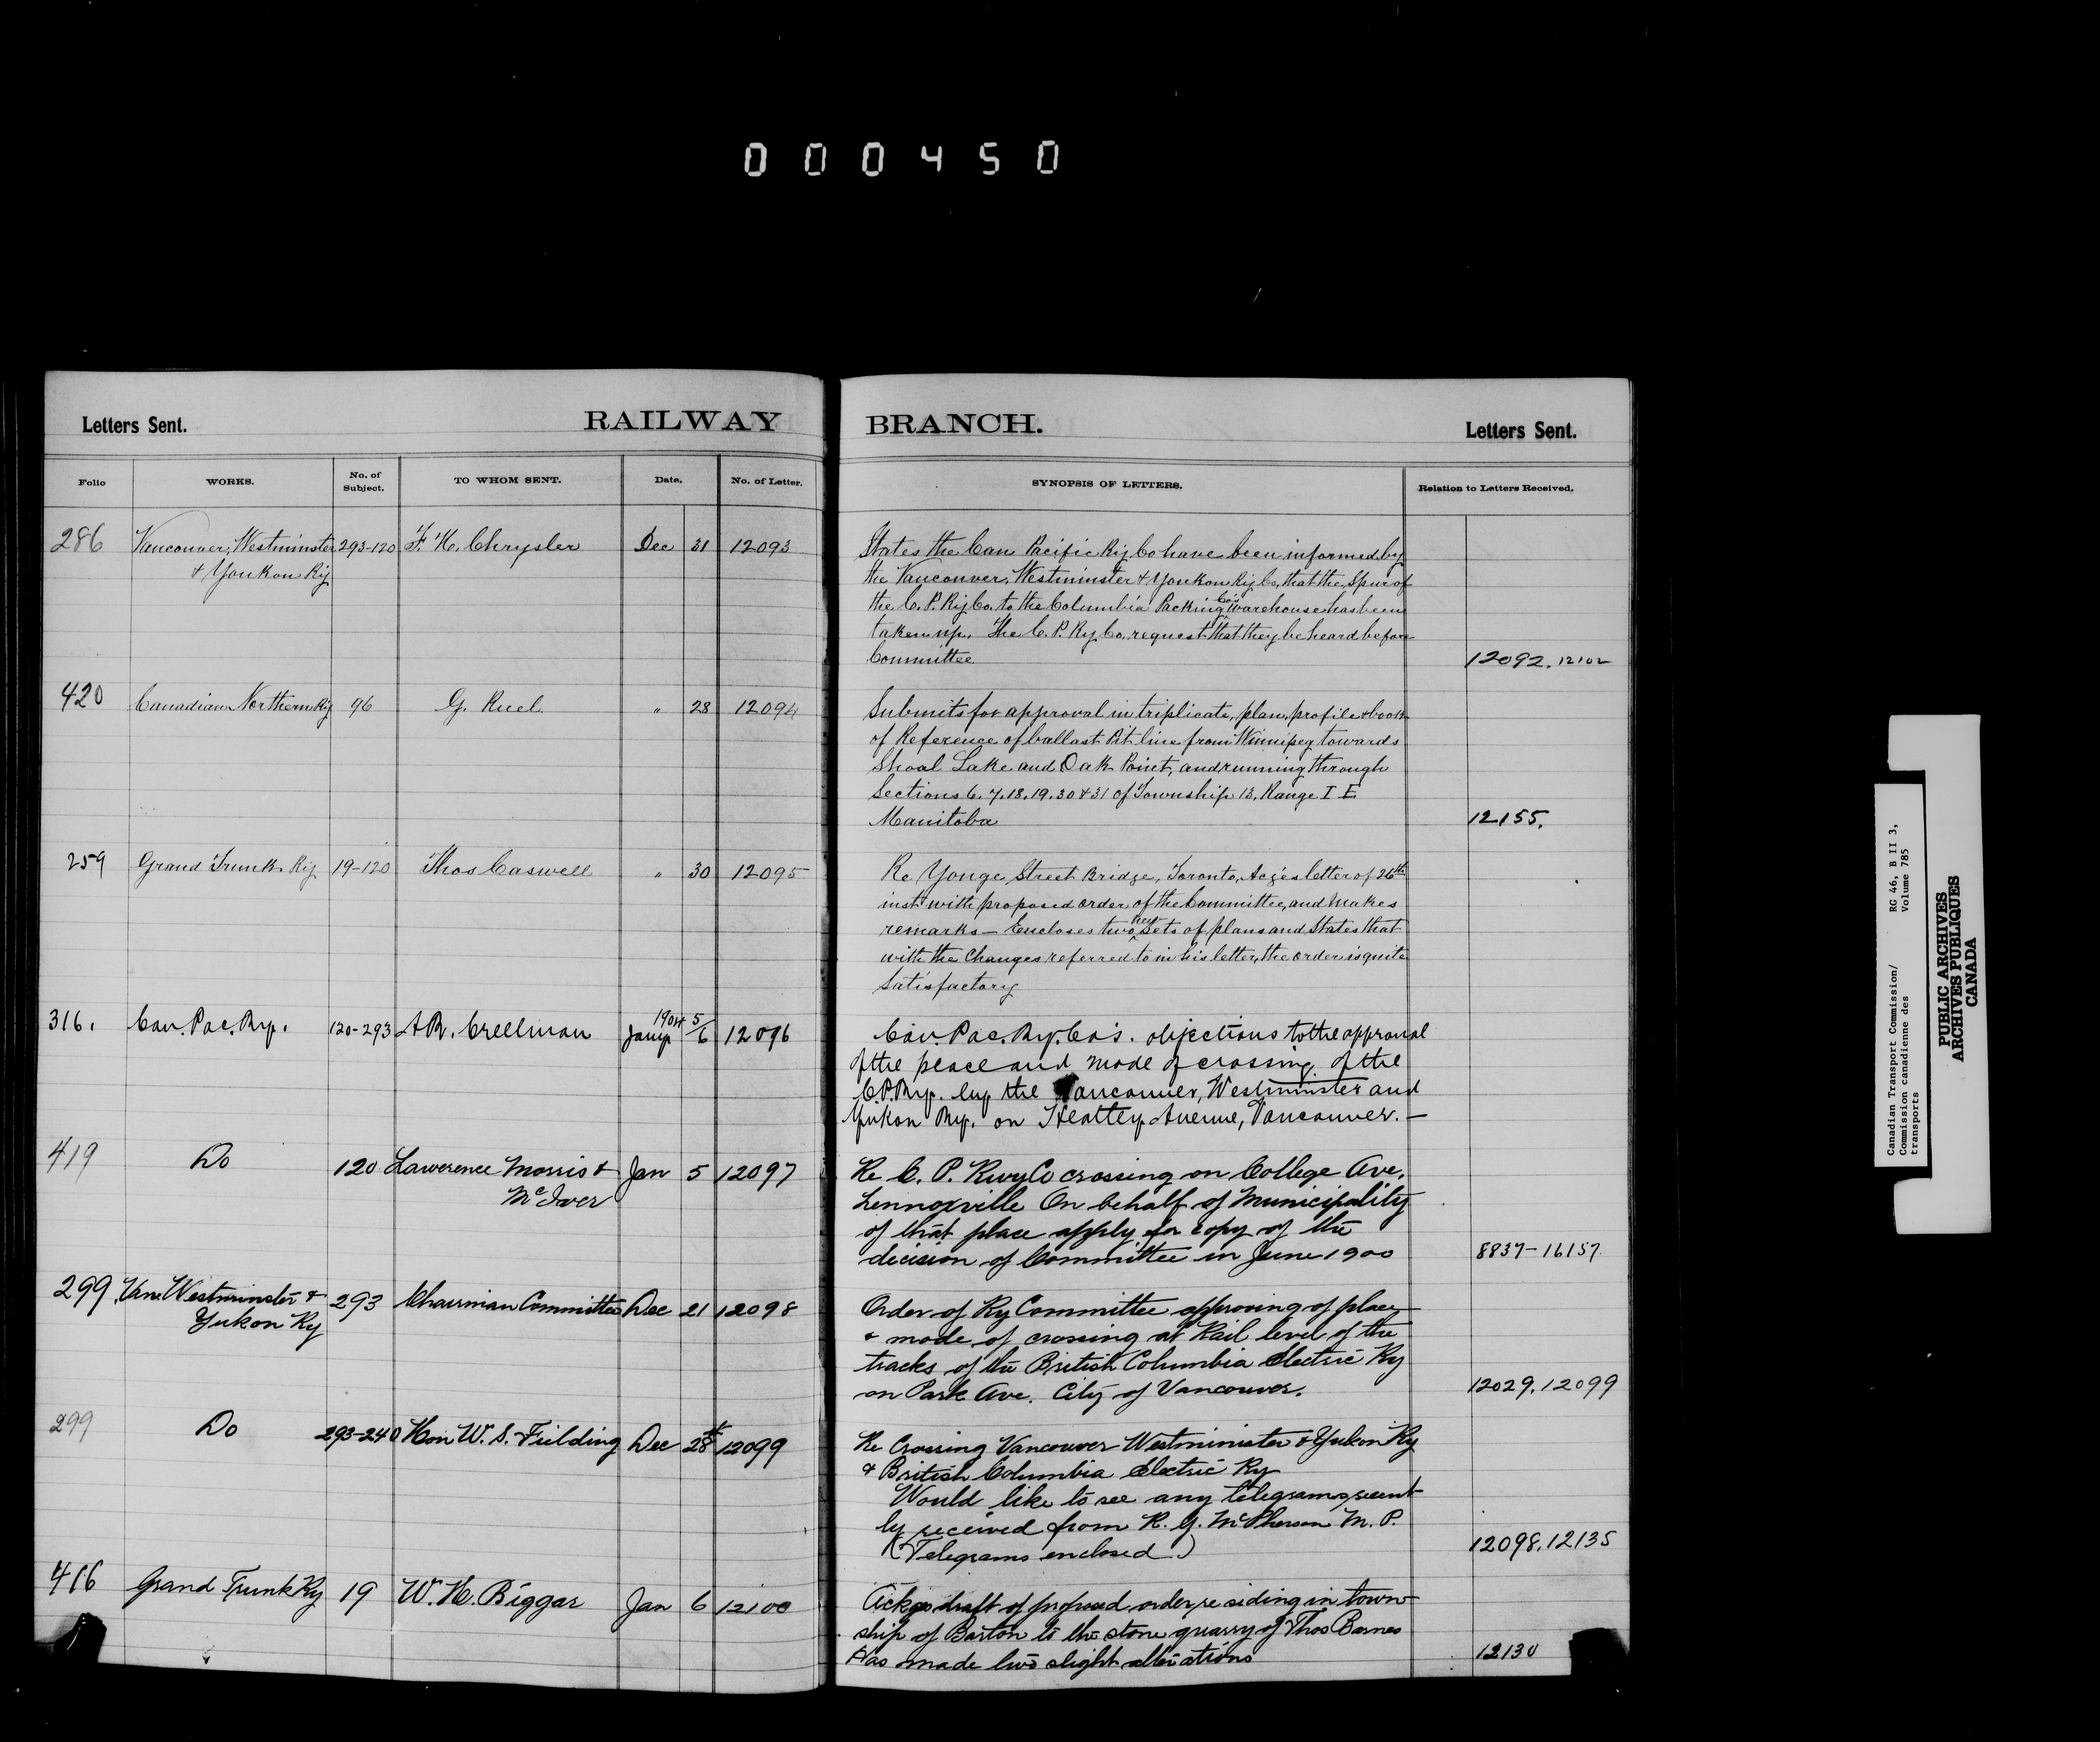 000450
Letters Sent. RAILWAY BRANCH. Letters Sent.
Folio WORKS. No. of Subject. TO WHOM SENT. Date. No. of Letter. SYNOPSIS OF LETTERS. Relation to Letters Received.
286 Vancouver, Westminster 293-120 F. H. Chrysler Dec 31 12093 States the Can Pacific Ry Co have been informed by
& Youkon Ry the Vancouver, Westminster & Youkon Ry Co, that the Spur of
the C. P. Ry Co. to the Columbia Packing Co's Warehouse has been
taken up. The C. P. Ry Co. request that they be heard before
Committee 12092. 12102
420 Canadian Northern Ry 96 G. Ruel " 28 12094 Submits for approval in triplicate, plan, profile & book
of Reference of ballast Pit line from Winnipeg towards
Shoal Lake and Oak Point, and running through
Sections 6. 7. 18. 19. 30 & 31 of Township 13. Range I E
Manitoba 12155.
259 Grand Trunk Ry 19-120 Thos Caswell " 30 12095 Re Yonge Street Bridge, Toronto, Ackg's letter of 26th
inst with proposed order of the Committee, and makes
remarks — Encloses two new sets of plans and States that
with the changes referred to in his letter, the order is quite
satisfactory
316. Can. Pac. Ry. 120-293 A R. Creelman 1904 Jan'y 5/6 12096 Can. Pac. Ry. Co's. objections to the approval
of the place and mode of crossing of the
C.P.Ry. by the Vancouver, Westminster and
Yukon Ry. on Heatley Avenue, Vancouver. —
419 Do 120 Lawerence Morris & Jan 5 12097 Re C. P. Rwy Co crossing on College Ave.
McIver Lennoxville On behalf of Municipality
of that place apply for copy of the
decision of Committee in June 1900 8837-16157.
299 Van. Westminster & 293 Chairman Committee Dec 21 12098 Order of Ry Committee approving of place
Yukon Ry & mode of crossing at Rail level of the
tracks of the British Columbia Electric Ry
on Park Ave. City of Vancouver. 12029. 12099
299 Do 293-240 Hon W. S. Fielding Dec 28 12099 Re Crossing Vancouver Westminister & Yukon Ry
& British Columbia Electric Ry
Would like to see any telegrams recent
ly received from R. G. McPherson M. P.
(Telegrams enclosed) 12098. 12135
416 Grand Trunk Ry 19 W. H. Biggar Jan 6 12100 Ackgs draft of proposed order re siding in town
ship of Barton to the stone quarry of Thos Barnes
Has made two slight alterations 12130
Canadian Transport Commission/ RG 46, B II 3,
Commission canadienne des Volume 785
transports
PUBLIC ARCHIVES
ARCHIVES PUBLIQUES
CANADA